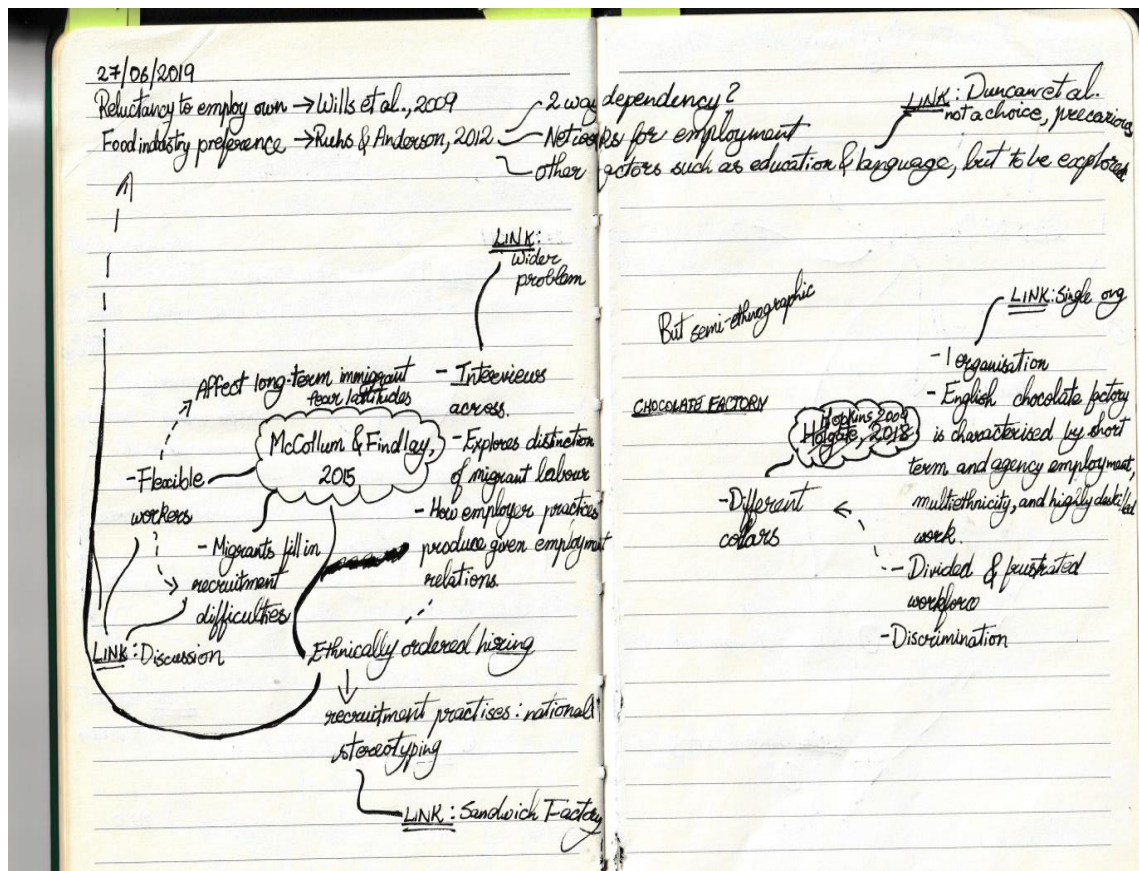 27/06/2019
Reluctancy to employ own → Wills et al., 2009
Food industry preference → Ruhs & Anderson, 2012
2 way dependency?
Networks for employment
other actors such as education & language, but to be explored
LINK: Duncan et al.
not a choice, precarious
LINK:
wider
problem
Affect long-term immigrant
fear/attitudes
McCollum & Findlay,
2015
- Flexible
workers
- Migrants fill in
recruitment
difficulties
LINK: Discussion
- Interviews
across.
- Explores distinction
of migrant labour
- How employer practices
produce given employment
relations.
Ethnically ordered hiring
recruitment practises: national
stereotyping
LINK: Sandwich Factory
But semi-ethnographic
CHOCOLATE FACTORY
Hopkins, 2009
Holgate, 2018
- Different
collars
LINK: Single org
- 1 organisation
- English chocolate factory
is characterised by short
term and agency employment,
multiethnicity, and highly deskilled
work.
- Divided & frustrated
workforce
- Discrimination